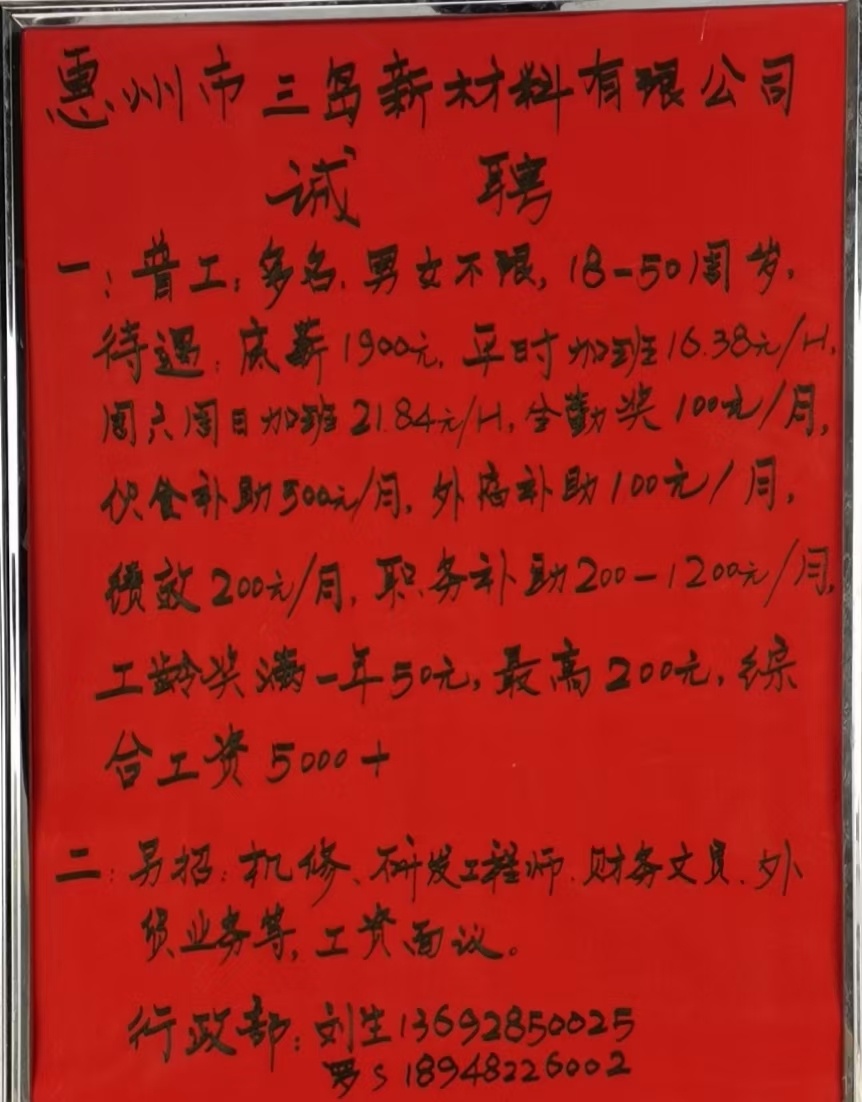 惠州市三岛新材料有限公司
诚 聘
一：普工：多名，男女不限，18-50周岁，
待遇：底薪1900元，平时加班16.38元/H，
周六周日加班21.84元/H，全勤奖100元/月，
伙食补助500元/月，外宿补助100元/月，
绩效200元/月，职务补助200-1200元/月，
工龄奖满一年50元，最高200元，综
合工资5000+
二：另招：机修、研发工程师、财务文员、外
贸业务等，工资面议。
行政部：刘生13692850025
罗S 18948226002